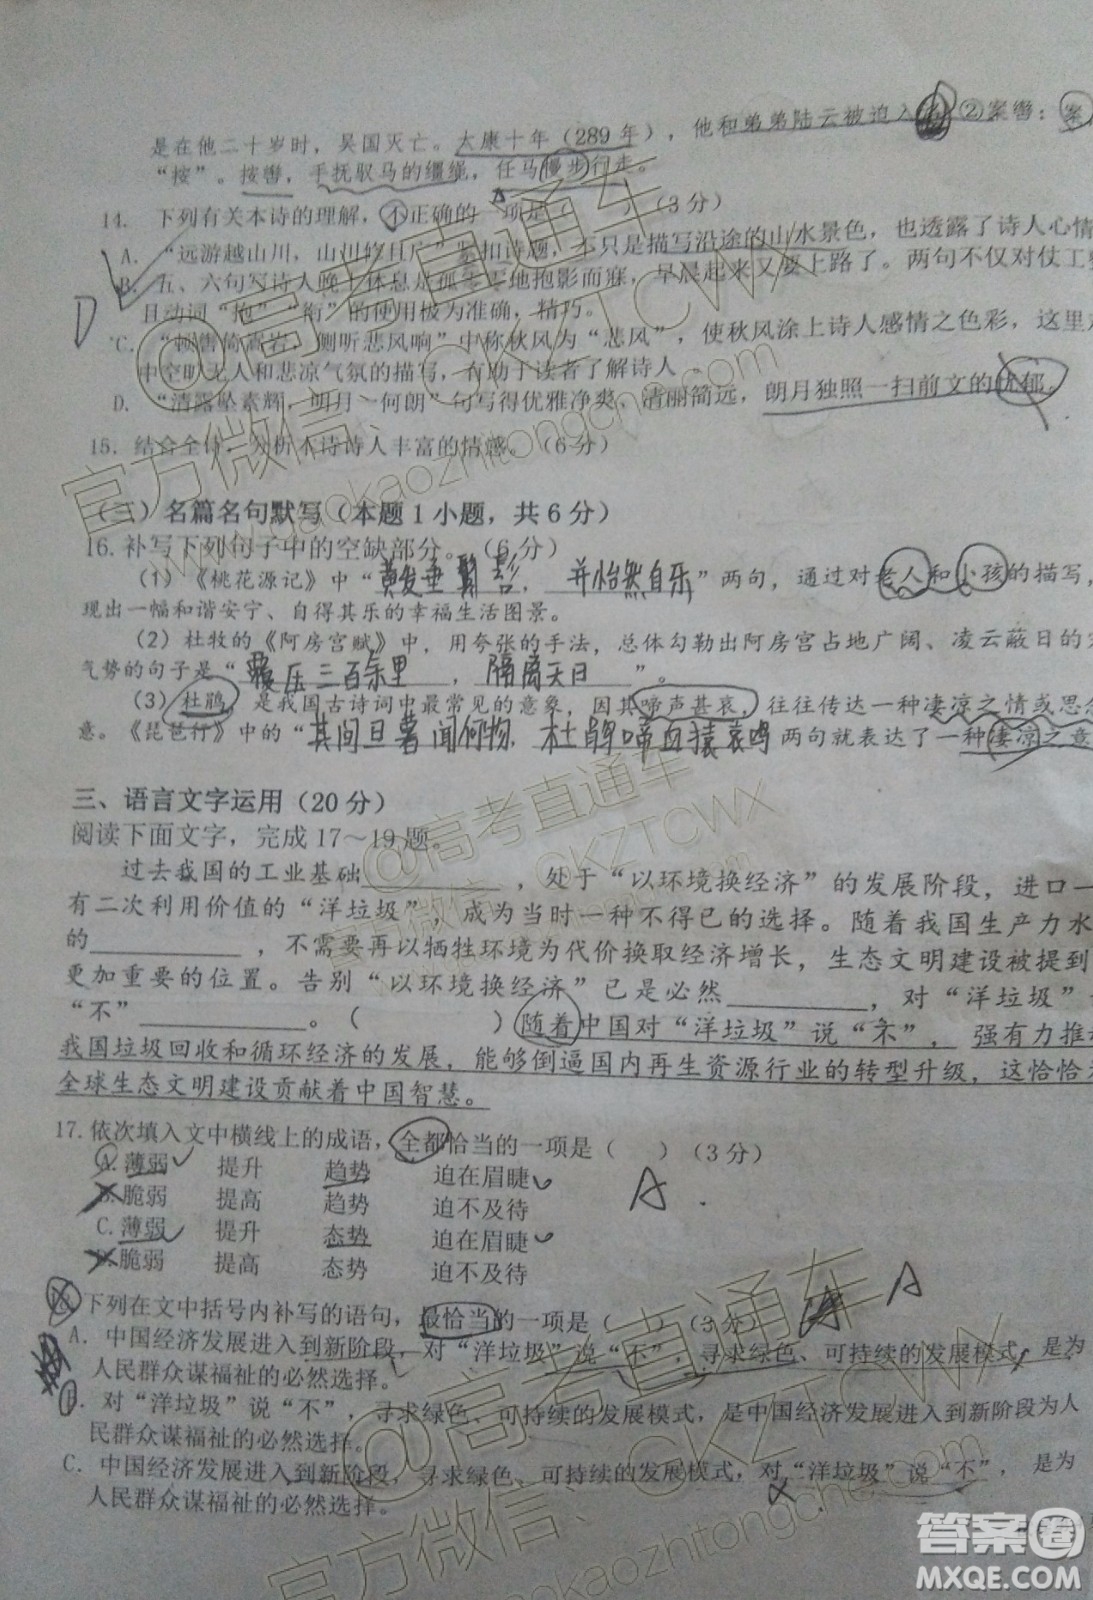 是在他二十岁时，吴国灭亡。太康十年（289年），他和弟弟陆云被迫入 ②案辔：案
“按”。按辔，手抚驭马的缰绳，任马慢步行走。
14. 下列有关本诗的理解，不正确的一项是（ ）（3分）
A. “远游越山川，山川修且广”紧扣诗题，不只是描写沿途的山水景色，也透露了诗人心情
B. 五、六句写诗人晚上休息是孤零零地抱影而寐，早晨起来又要上路了。两句不仅对仗工整
且动词“抱”“衔”的使用极为准确，精巧。
C. “顿辔倚高岩，侧听悲风响”中称秋风为“悲风”，使秋风涂上诗人感情之色彩，这里对
中空旷无人和悲凉气氛的描写，有助于读者了解诗人
D. “清露坠素辉，明月一何朗”句写得优雅净爽、清丽简远，朗月独照一扫前文的忧郁。
D
15. 结合全诗，分析本诗诗人丰富的情感。（6分）
（三）名篇名句默写（本题1小题，共6分）
16. 补写下列句子中的空缺部分。（6分）
（1）《桃花源记》中“黄发垂髫，并怡然自乐”两句，通过对老人和小孩的描写，
现出一幅和谐安宁、自得其乐的幸福生活图景。
（2）杜牧的《阿房宫赋》中，用夸张的手法，总体勾勒出阿房宫占地广阔、凌云蔽日的宏
气势的句子是“覆压三百余里，隔离天日”。
（3）杜鹃，是我国古诗词中最常见的意象，因其啼声甚哀，往往传达一种凄凉之情或思念
意。《琵琶行》中的“其间旦暮闻何物，杜鹃啼血猿哀鸣 两句就表达了一种凄凉之意
三、语言文字运用（20分）
阅读下面文字，完成17～19题。
过去我国的工业基础________，处于“以环境换经济”的发展阶段，进口一
有二次利用价值的“洋垃圾”，成为当时一种不得已的选择。随着我国生产力水
的________，不需要再以牺牲环境为代价换取经济增长，生态文明建设被提到
更加重要的位置。告别“以环境换经济”已是必然________，对“洋垃圾”
“不”________。（ ）随着中国对“洋垃圾”说“不”，强有力推动
我国垃圾回收和循环经济的发展，能够倒逼国内再生资源行业的转型升级，这恰恰为
全球生态文明建设贡献着中国智慧。
17. 依次填入文中横线上的成语，全都恰当的一项是（ ）（3分）
A. 薄弱 提升 趋势 迫在眉睫
B. 脆弱 提高 趋势 迫不及待
C. 薄弱 提升 态势 迫在眉睫
D. 脆弱 提高 态势 迫不及待
A
下列在文中括号内补写的语句，最恰当的一项是（ ）（3分）
A
A. 中国经济发展进入到新阶段，对“洋垃圾”说“不”，寻求绿色、可持续的发展模式，是为
人民群众谋福祉的必然选择。
B. 对“洋垃圾”说“不”，寻求绿色、可持续的发展模式，是中国经济发展进入到新阶段为人
民群众谋福祉的必然选择。
C. 中国经济发展进入到新阶段，寻求绿色、可持续的发展模式，对“洋垃圾”说“不”，是为
人民群众谋福祉的必然选择。
@高考直通车
官方微信：GKZTCWX
www.gaokaozhitongche.com
@高考直通车
官方微信：GKZTCWX
@高考直通车
官方微信：GKZTCWX
www.gaokaozhitongche.com
答案圈
MXQE.COM